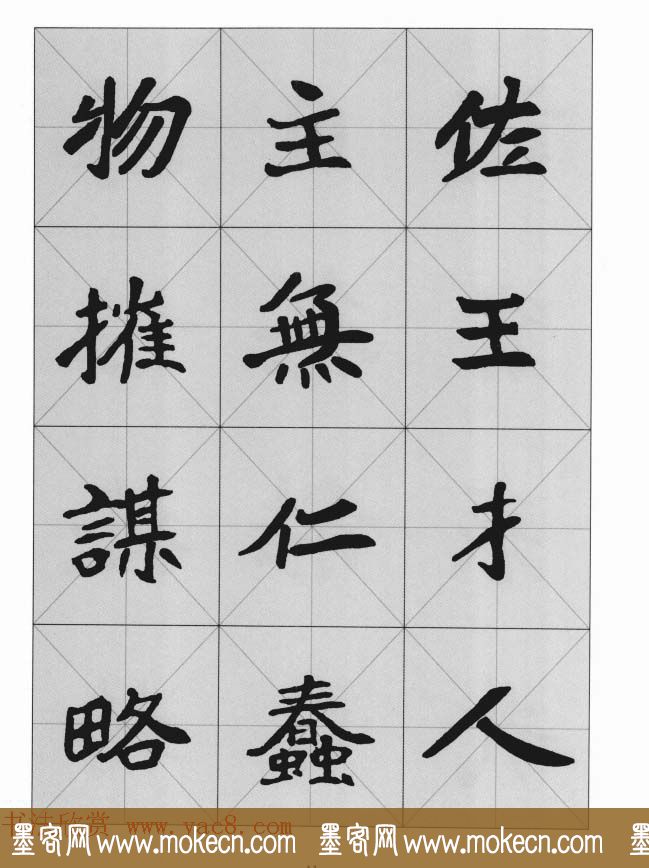 佐王才人
主無仁蠢
物搉謀略
书法欣赏 www.yac8.com
墨客网 www.mokecn.com 墨客网 www.mokecn.com